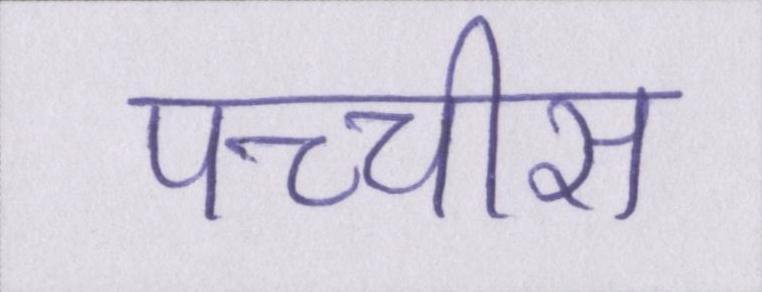 पच्चीस